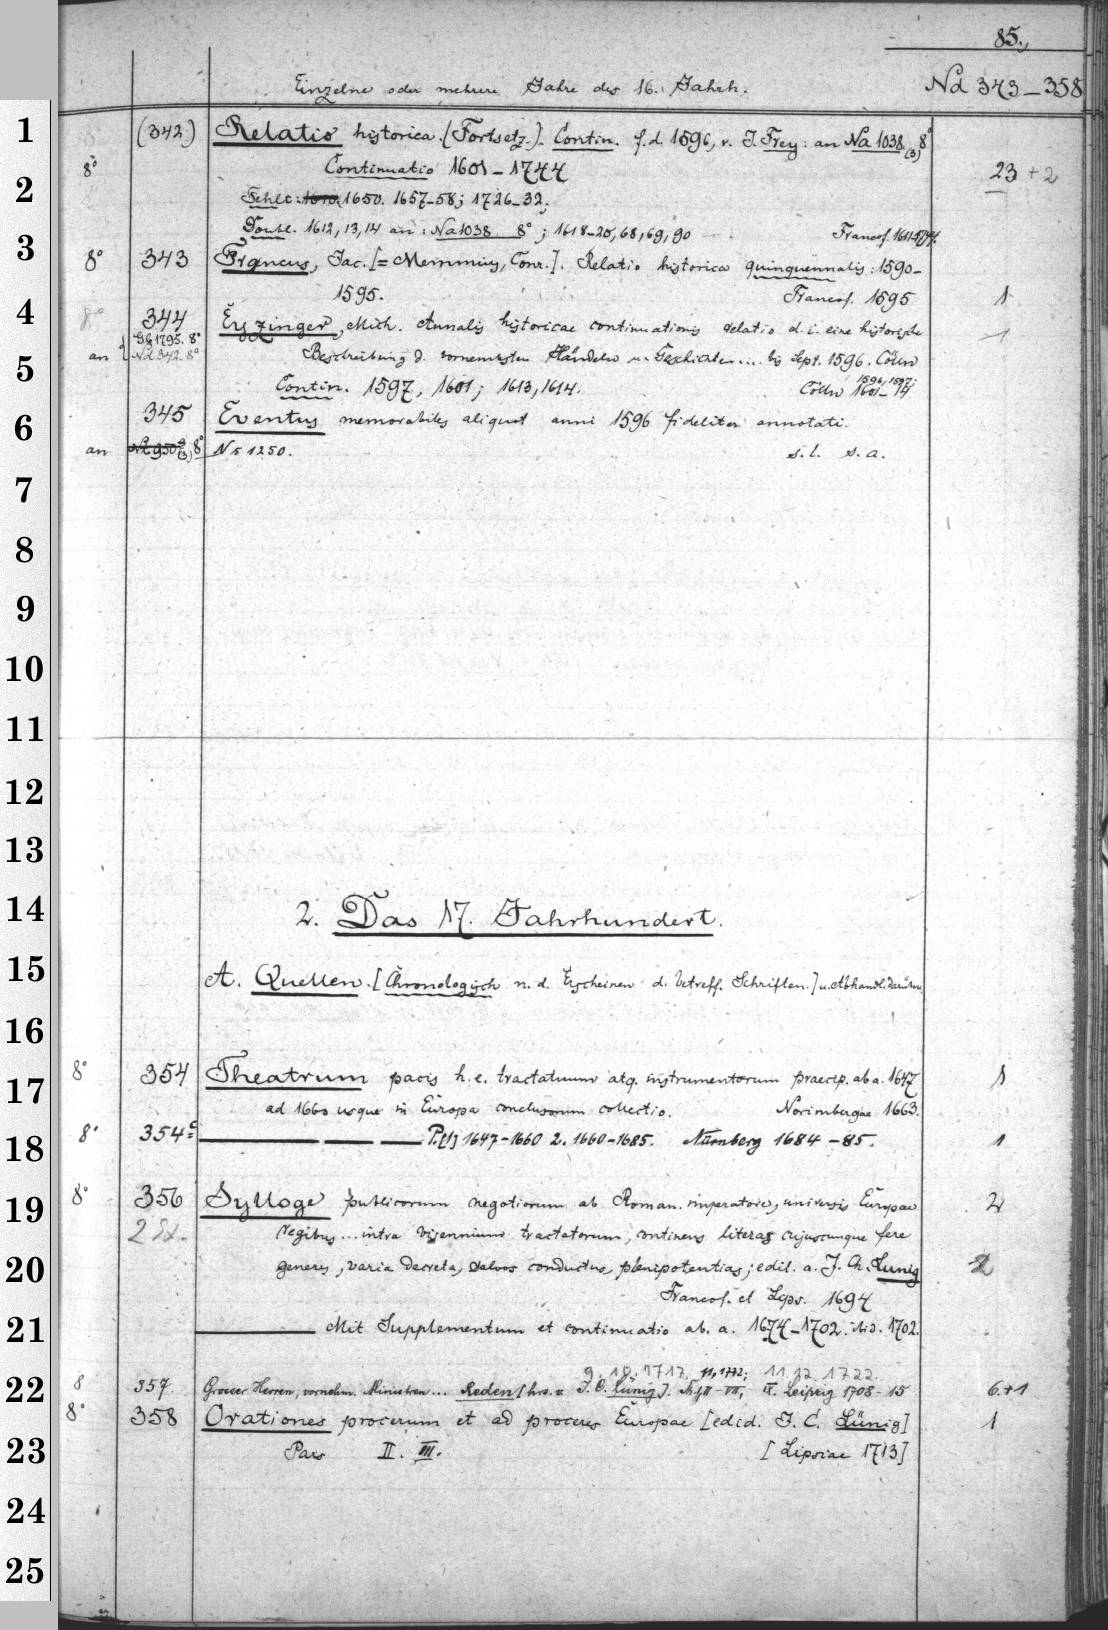 85.
Einzelne oder mehrere Jahre des 16. Jahrh. Nd 343–358
1
(342) Relatio historica. (Fortsetz.). Contin. f. d. 1596, v. J. Frey: an Na 1038 (3) 8°
8° Continuatio 1601–1744 23 + 2
2
Fehlt: 1650. 1657–58; 1726–32;
Doubl. 1612, 13, 14 an: Na 1038 8°; 1618–20, 68, 69, 90 Francof. 1611–1744.
3
8° 343 Francus, Jac. [= Memmius, Conr.]. Relatio historica quinquennalis: 1590–
1595. Francof. 1595 1
4
8° 344 Eyzinger, Mich. Annalis historicae continuationis relatio d. i. eine historische 1
an Gg 1795. 8° Nd 342. 8° Beschreibung d. vornemsten Händeln u. Geschichten.... bis Sept. 1596. Cölln
5
1596, 1597;
Contin. 1597, 1601; 1613, 1614. Cölln 1601–14
6
345 Eventus memorabiles aliquot anni 1596 fideliter annotati.
an 8° N 1250. s. l. s. a.
7
8
9
10
11
12
13
14
2. Das 17. Jahrhundert.
15
A. Quellen. [Chronologisch n. d. Erscheinen d. betreff. Schriften.] u. Abhandl. darüber.
16
17
8° 354 Theatrum pacis h. e. tractatuum atq. instrumentorum praecip. ab a. 1647 1
ad 1660 usque in Europa conclusorum collectio. Norimbergae 1663.
18
8° 354c ——— — — P. [1] 1647–1660 2. 1660–1685. Nürnberg 1684–85. 1
19
8° 356 Sylloge publicorum negotiorum ab Roman. imperatore, universis Europae 2
2 Ex. regibus... intra vicennium tractatorum, continens literas cujuscunque fere
20
generis, varia decreta, salvos conductus, plenipotentias; edit. a. J. Ch. Lunig 2
Francof. et Lips. 1694
21
——— Mit Supplementum et continuatio ab. a. 1674–1702. ibid. 1702.
22
9. 10. 1717. 11, 1722; 11. 12. 1722.
8 357 Grosser Herren, vornehm. Ministren... Reden [hrs. v. J. C. Lünig]. Th. III–VII, IX. Leipzig 1708–15 6 + 1
8° 358 Orationes procerum et ad proceres Europae [edid. J. C. Lünig] 1
23
Pars II. III. [Lipsiae 1713]
24
25